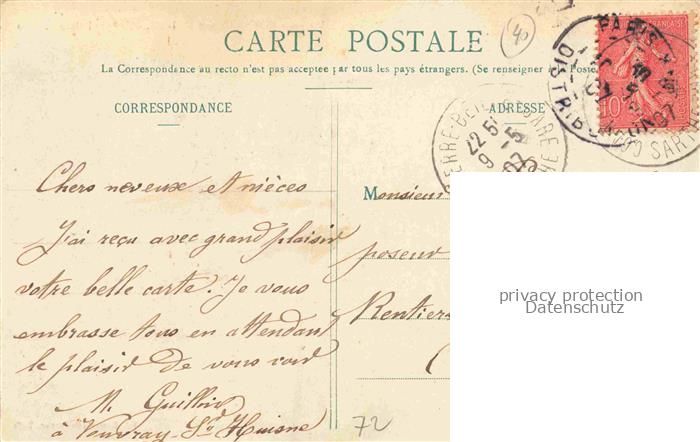 CARTE POSTALE
40
La Correspondance au recto n'est pas acceptée par tous les pays étrangers. (Se renseigner à la Poste
CORRESPONDANCE
ADRESSE
PARIS
DISTRIB
FRANÇAISE
10
SARTHE
GARE
22 5
9 -5
07
Chers neveux et nièces
J'ai reçu avec grand plaisir
votre belle carte. Je vous
embrasse tous en attendant
le plaisir de vous voir
M. Guillois
à Vouvray-S/-Huisne
Monsieur
poseur
Rentiers
72
privacy protection
Datenschutz